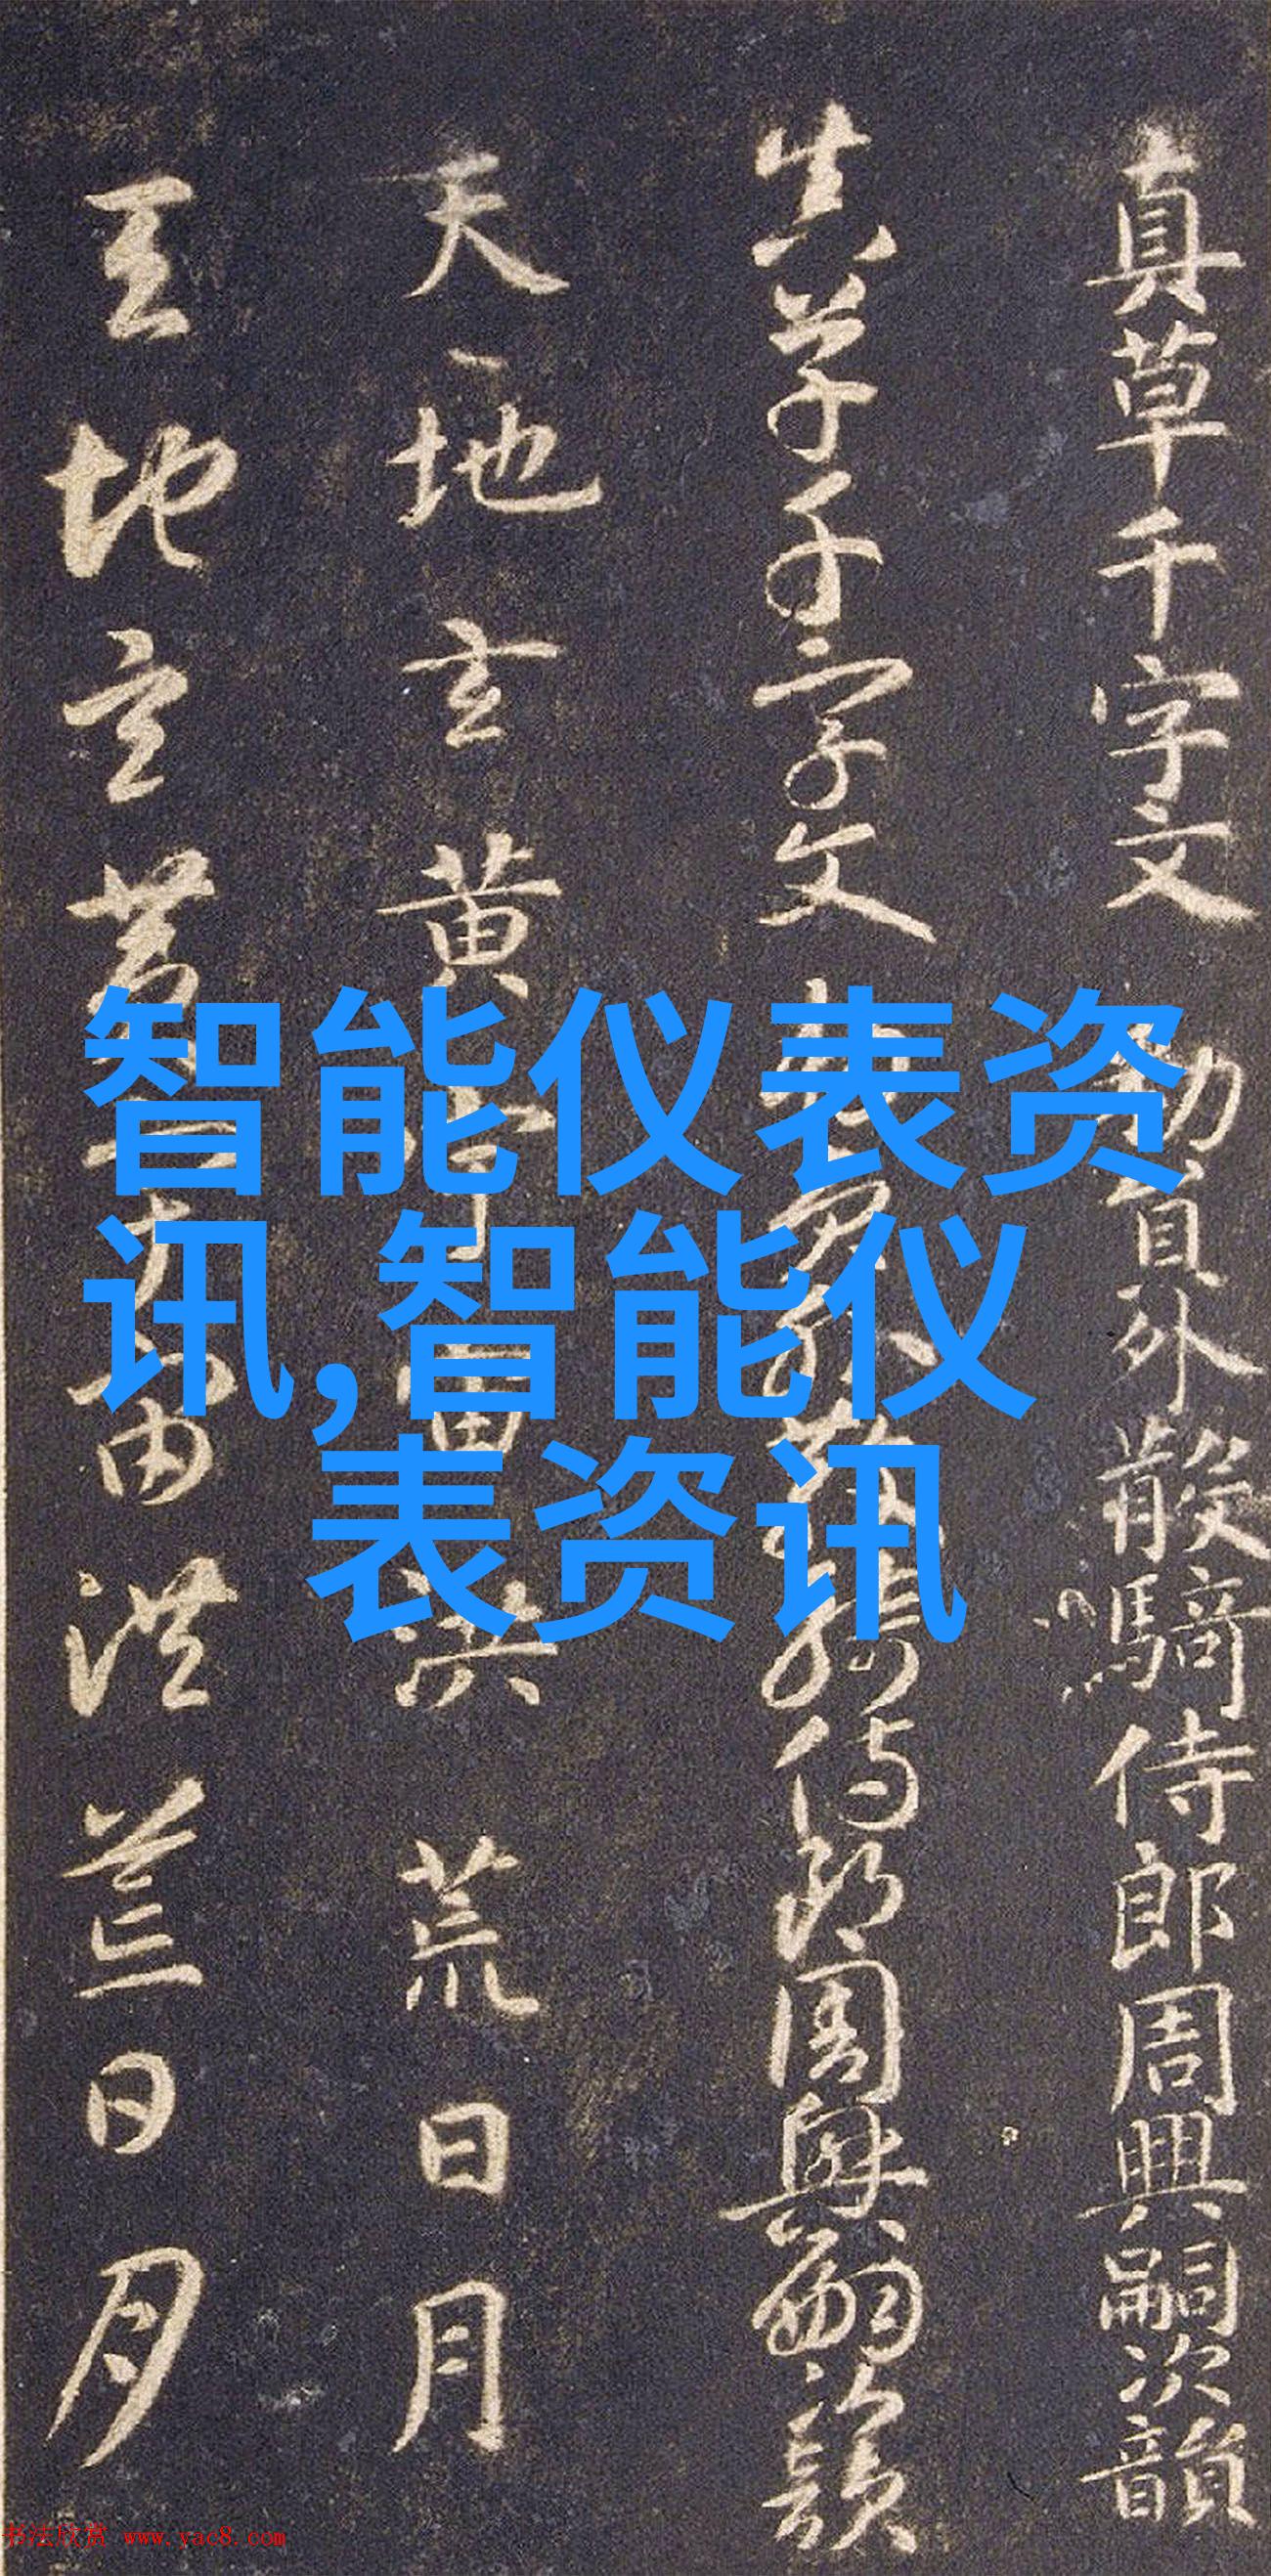 真草千字文 勅員外散騎侍郎周興嗣次韻
真草千字文 勅員外散騎侍郎周興嗣次韻
天地玄黃宇宙洪荒日月
天地玄黃宇宙洪荒日月
智能仪表资
讯,智能仪
表资讯
书法欣赏 www.yac8.com